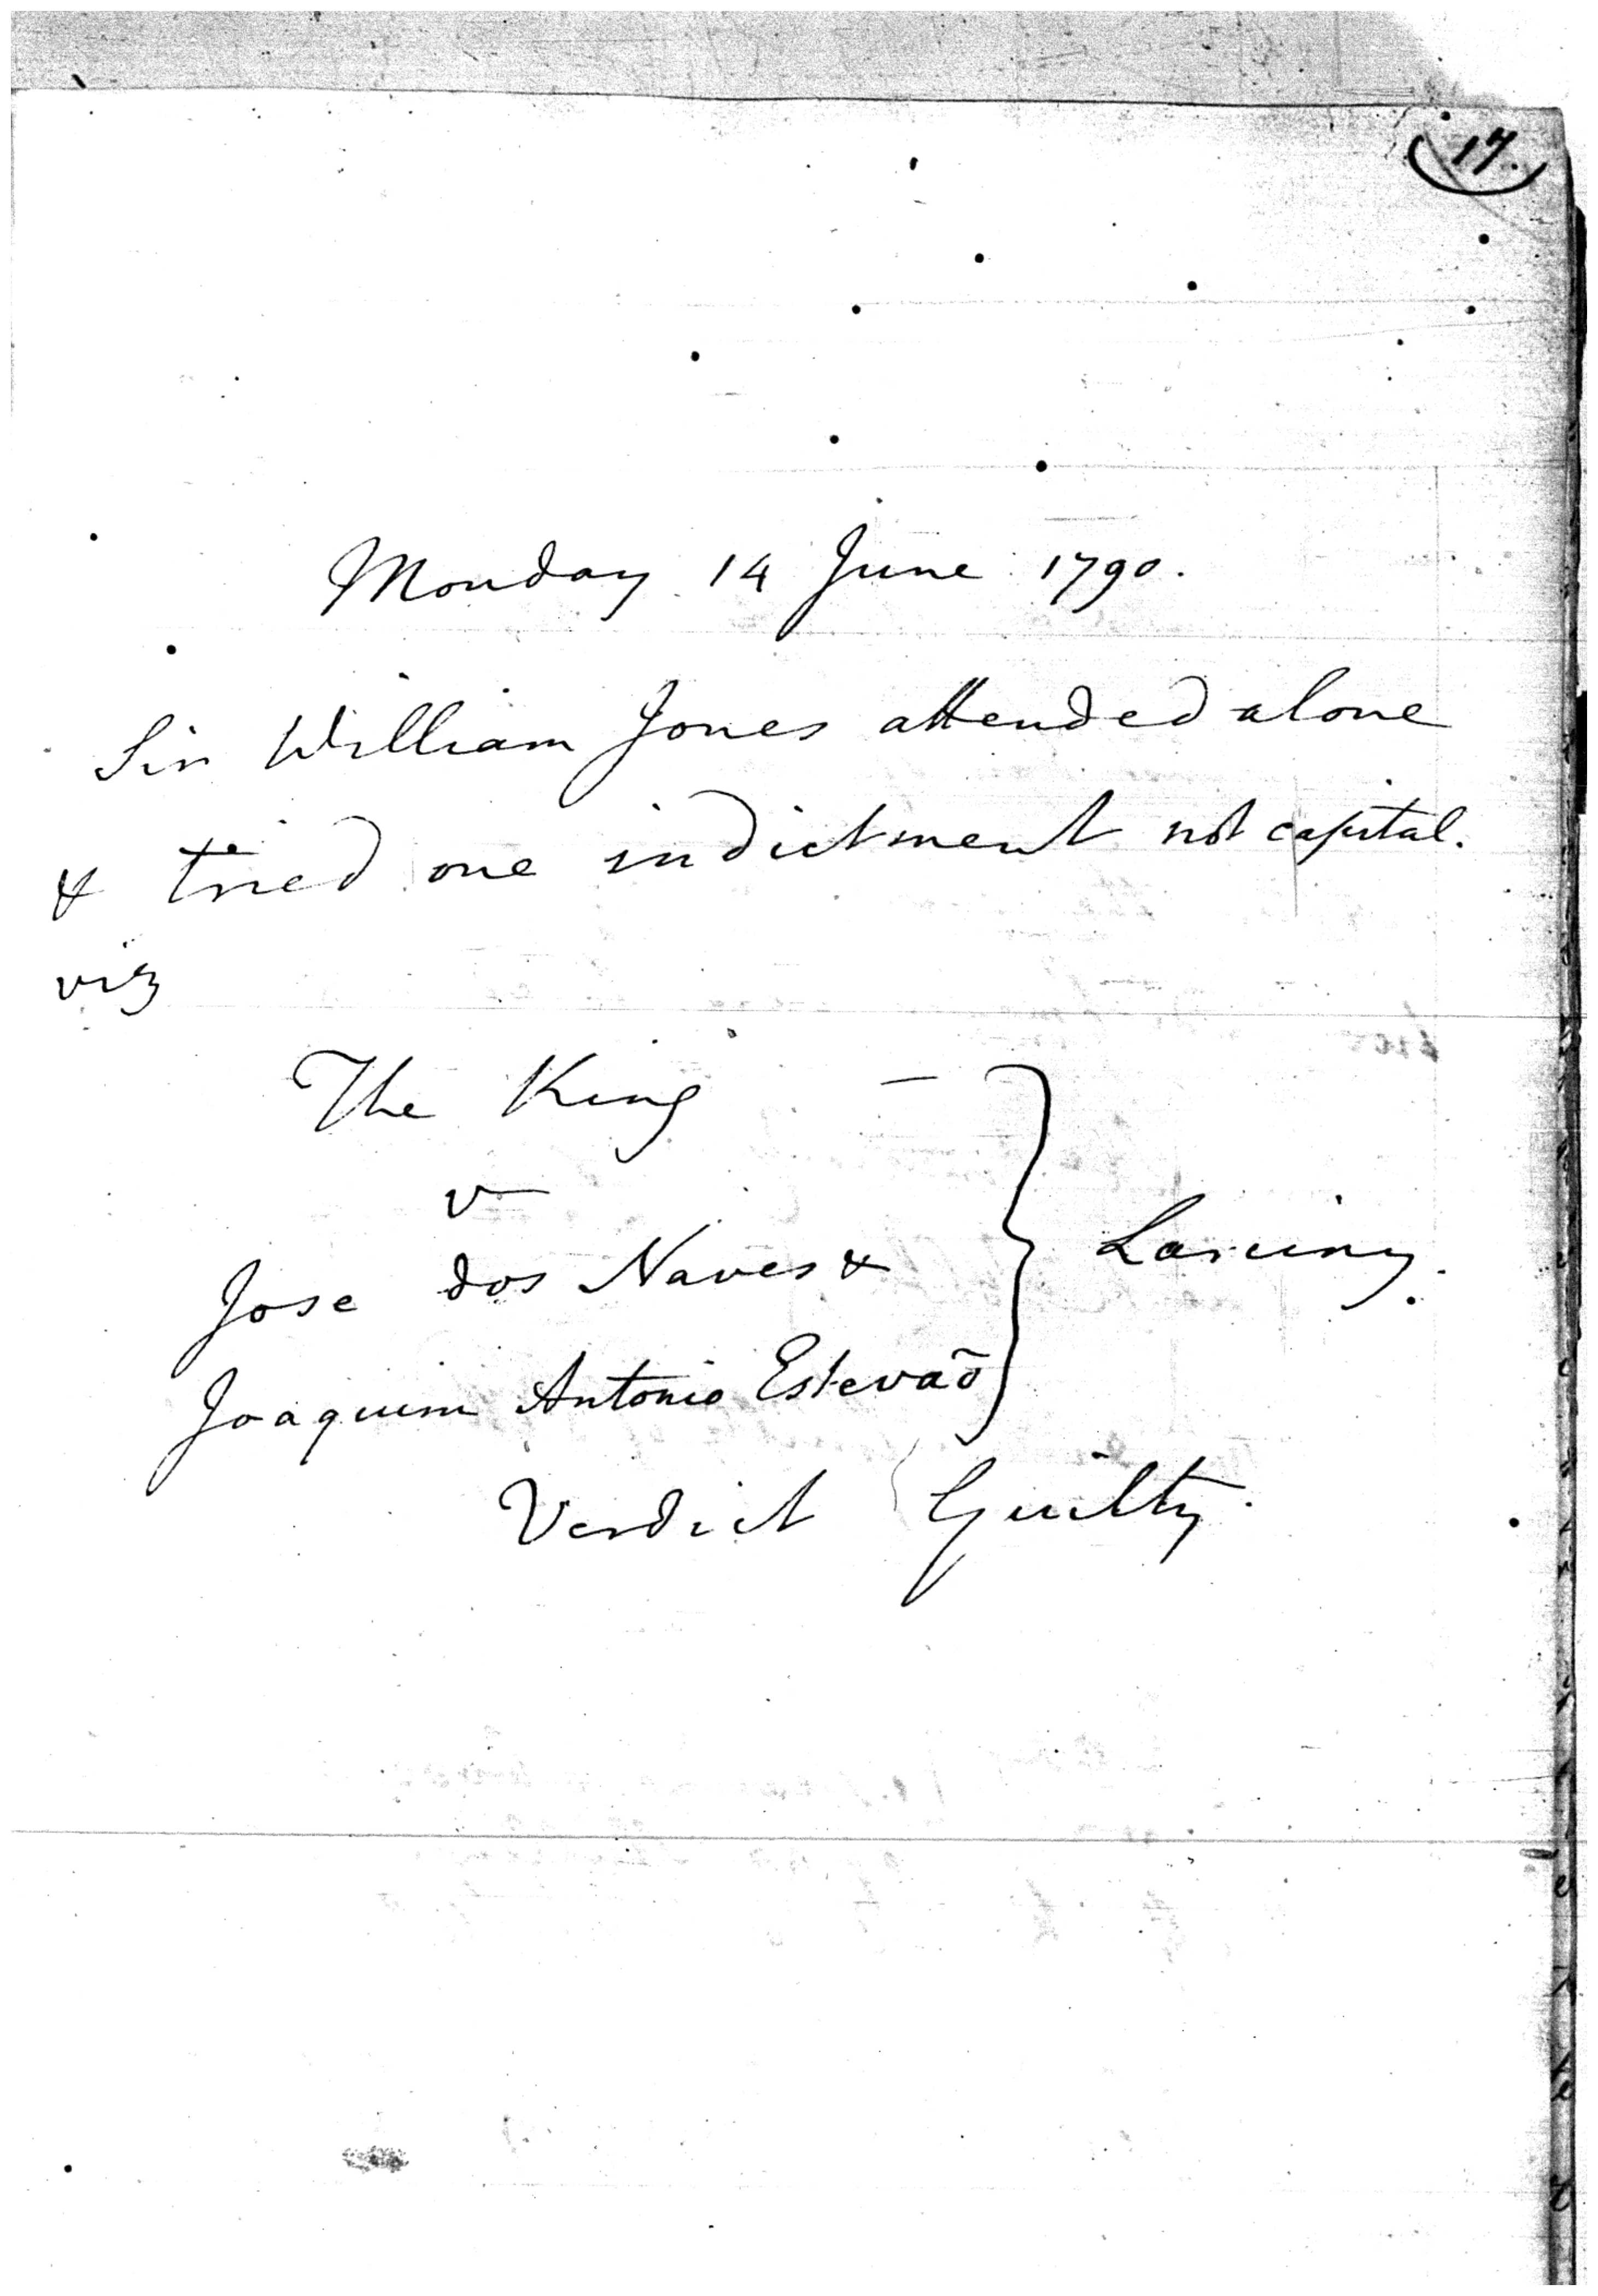 17.
Monday 14 June 1790.
Sir William Jones attended alone
& tried one indictment not capital.
viz
The King —
v
Jose dos Naves & Larciny.
Joaquim Antonio Estevão
Verdict Guilty.